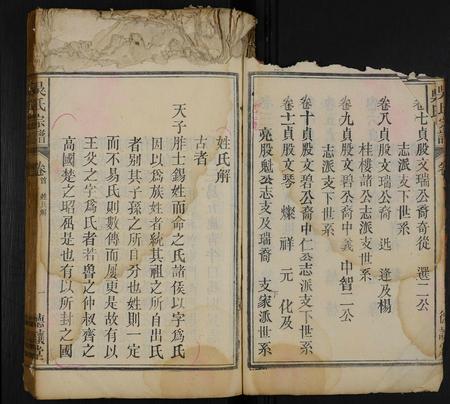 卷七貞股文瑞公裔奇後 選二公
志派支下世系
卷八貞股文瑞公裔 逢及楊
桂樓諸公志派支世系
卷九貞股文碧公裔中義中智二公
志派支下世系
卷十貞股文碧公裔中仁公志派支下世系
卷十一貞股文琴 燦 祥 元 化及
亮股魁公志支及瑞裔 支家派世系
姓氏解
古者
天子胙士錫姓而命之氏諸侯以字為氏
因以為族姓者統其祖之所自出氏
者別其子孫之所自分也姓則一定
而不易氏則數傳而屢更是故有以
王父之字為氏者若魯之仲叔齊之
高國楚之昭屈是也有以所封之國
吳氏宗譜
卷首 姓解
一
德讓堂